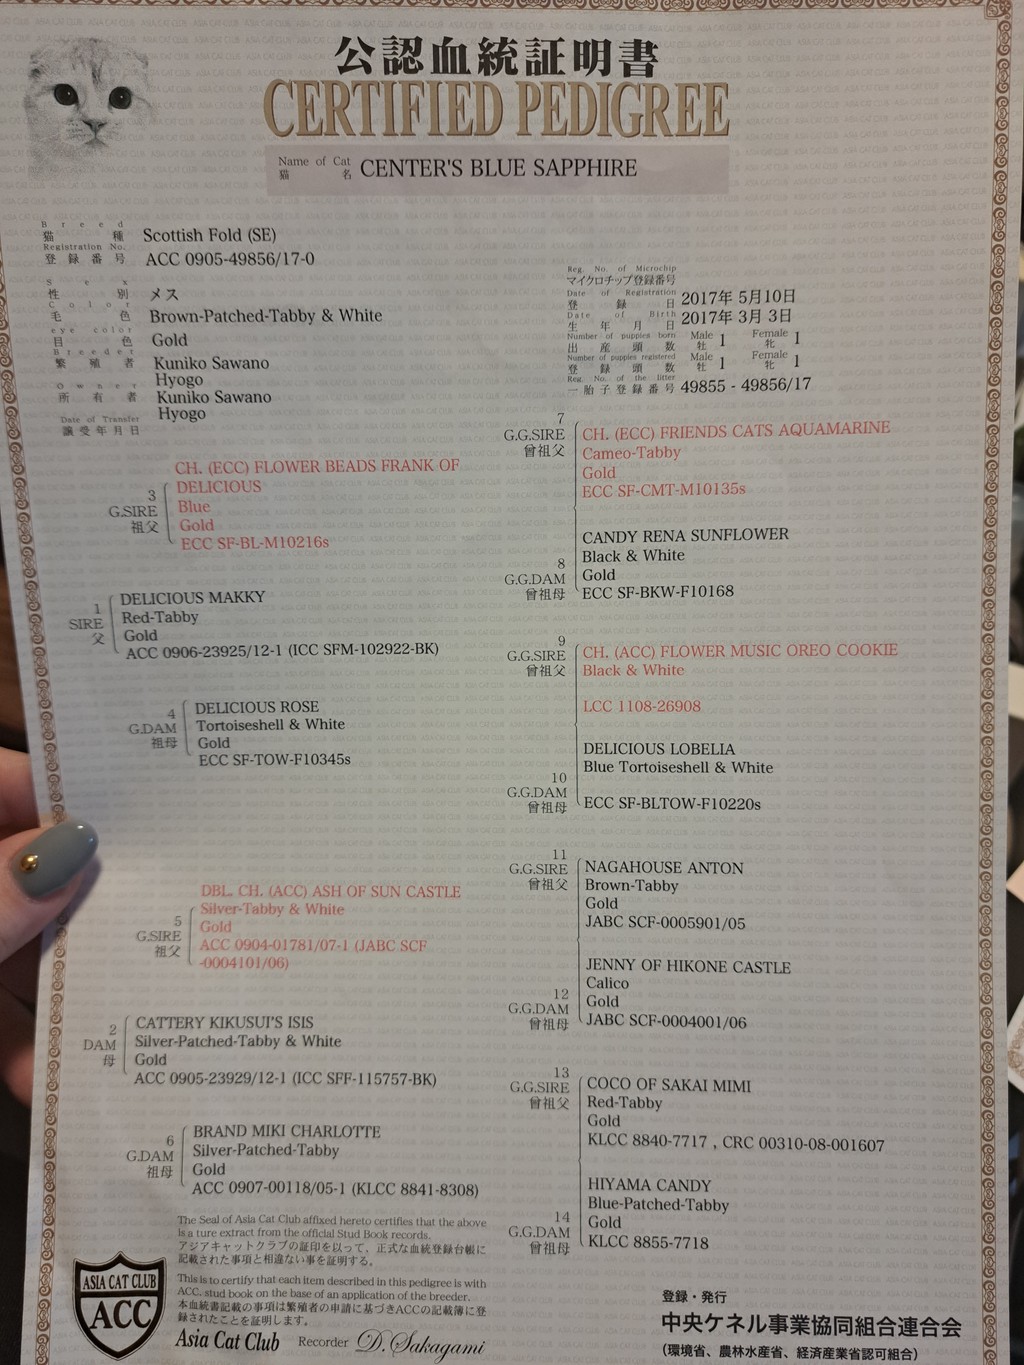 公認血統証明書
CERTIFIED PEDIGREE
Name of Cat
猫 名 CENTER'S BLUE SAPPHIRE
Breed
猫種 Scottish Fold (SE)
Registration No.
登録番号 ACC 0905-49856/17-0
Sex
性別 メス
Color
毛色 Brown-Patched-Tabby & White
eye color
目色 Gold
Breeder
繁殖者 Kuniko Sawano
Hyogo
Owner
所有者 Kuniko Sawano
Hyogo
Date of Transfer
譲受年月日
Reg. No. of Microchip
マイクロチップ登録番号
Date of Registration
登録日 2017年 5月10日
Date of Birth
生年月日 2017年 3月 3日
Number of puppies born Male Female
出産頭数 牡 1 牝 1
Number of puppies registered Male Female
登録頭数 牡 1 牝 1
Reg. No. of the litter
一胎子登録番号 49855 - 49856/17
3
G.SIRE
祖父
CH. (ECC) FLOWER BEADS FRANK OF
DELICIOUS
Blue
Gold
ECC SF-BL-M10216s
1
SIRE
父
DELICIOUS MAKKY
Red-Tabby
Gold
ACC 0906-23925/12-1 (ICC SFM-102922-BK)
4
G.DAM
祖母
DELICIOUS ROSE
Tortoiseshell & White
Gold
ECC SF-TOW-F10345s
5
G.SIRE
祖父
DBL. CH. (ACC) ASH OF SUN CASTLE
Silver-Tabby & White
Gold
ACC 0904-01781/07-1 (JABC SCF
-0004101/06)
2
DAM
母
CATTERY KIKUSUI'S ISIS
Silver-Patched-Tabby & White
Gold
ACC 0905-23929/12-1 (ICC SFF-115757-BK)
6
G.DAM
祖母
BRAND MIKI CHARLOTTE
Silver-Patched-Tabby
Gold
ACC 0907-00118/05-1 (KLCC 8841-8308)
7
G.G.SIRE
曾祖父
CH. (ECC) FRIENDS CATS AQUAMARINE
Cameo-Tabby
Gold
ECC SF-CMT-M10135s
8
G.G.DAM
曾祖母
CANDY RENA SUNFLOWER
Black & White
Gold
ECC SF-BKW-F10168
9
G.G.SIRE
曾祖父
CH. (ACC) FLOWER MUSIC OREO COOKIE
Black & White
LCC 1108-26908
10
G.G.DAM
曾祖母
DELICIOUS LOBELIA
Blue Tortoiseshell & White
ECC SF-BLTOW-F10220s
11
G.G.SIRE
曾祖父
NAGAHOUSE ANTON
Brown-Tabby
Gold
JABC SCF-0005901/05
12
G.G.DAM
曾祖母
JENNY OF HIKONE CASTLE
Calico
Gold
JABC SCF-0004001/06
13
G.G.SIRE
曾祖父
COCO OF SAKAI MIMI
Red-Tabby
Gold
KLCC 8840-7717 , CRC 00310-08-001607
14
G.G.DAM
曾祖母
HIYAMA CANDY
Blue-Patched-Tabby
Gold
KLCC 8855-7718
The Seal of Asia Cat Club affixed hereto certifies that the above
is a ture extract from the official Stud Book records.
アジアキャットクラブの証印を以って、正式な血統登録台帳に
記載された事項と相違ない事を証明する。
This is to certify that each item described in this pedigree is with
ACC. stud book on the base of an application of the breeder.
本血統書記載の事項は繁殖者の申請に基づきACCの記載簿に登
録されたことを証明します。
ASIA CAT CLUB
ACC
Asia Cat Club Recorder D. Sakagami
登録・発行
中央ケネル事業協同組合連合会
（環境省、農林水産省、経済産業省認可組合）